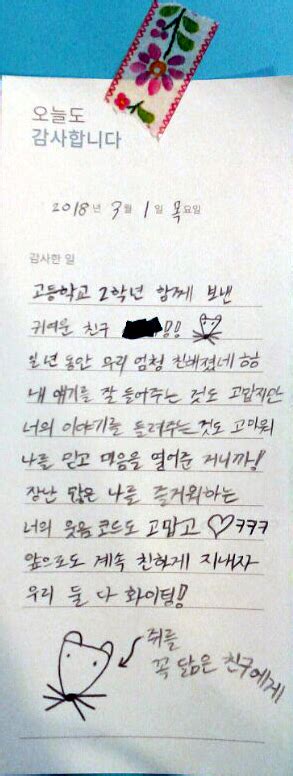 오늘도
감사합니다
2018년 3월 1일 목요일
감사한 일
고등학교 2학년 함께 보낸
귀여운 친구 !!
일년 동안 우리 엄청 친해졌네 ㅎㅎ
내 얘기를 잘 들어주는 것도 고맙지만
너의 이야기를 들려주는 것도 고마워
나를 믿고 마음을 열어준 거니까!
장난 많은 나를 즐거워하는
너의 웃음 코드도 고맙고 ♡ㅋㅋㅋ
앞으로도 계속 친하게 지내자
우리 둘 다 화이팅!!
쥐를
꼭 닮은 친구에게